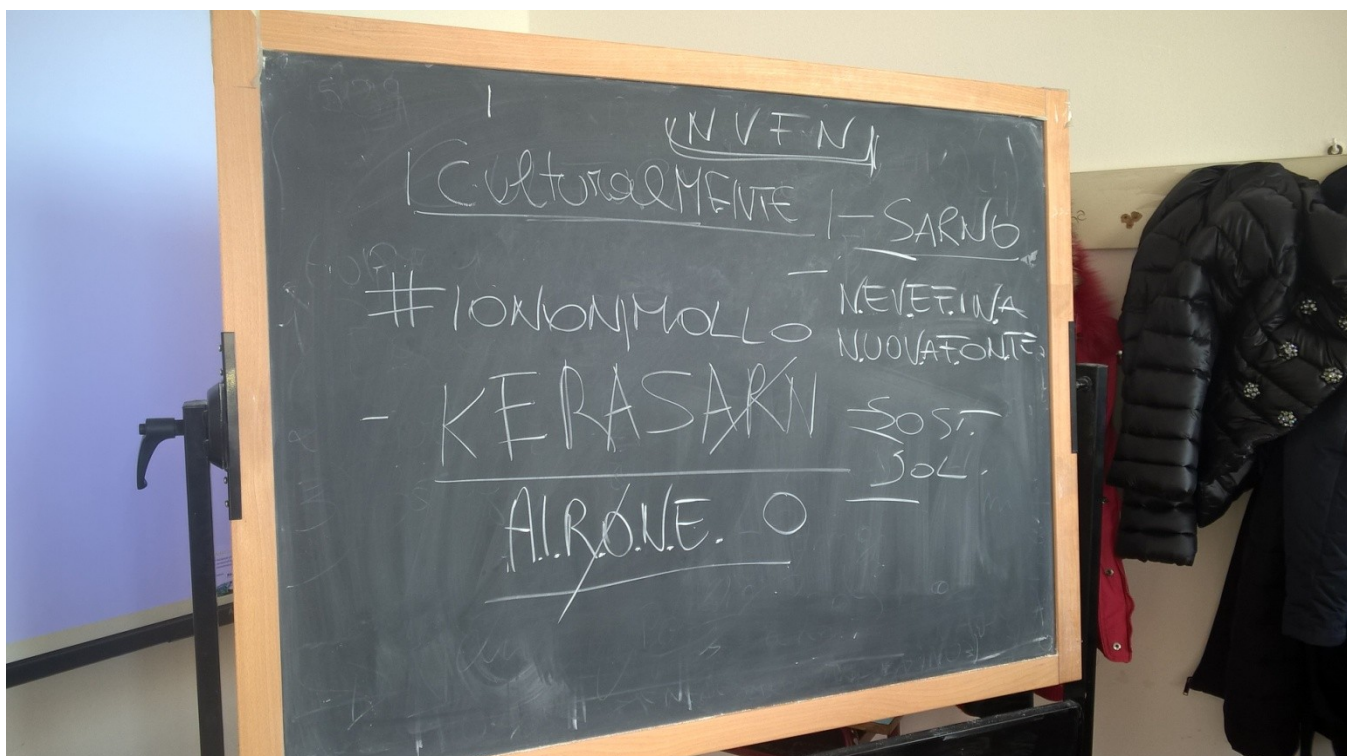 N V F N
CulturalMENTE
SARNO
#IONONMOLLO
N.E.V.E.F.I.N.A
NUOVA.F.ONTE.
KERASARN
SOST.
SOL.
A.I.R.O.N.E. O